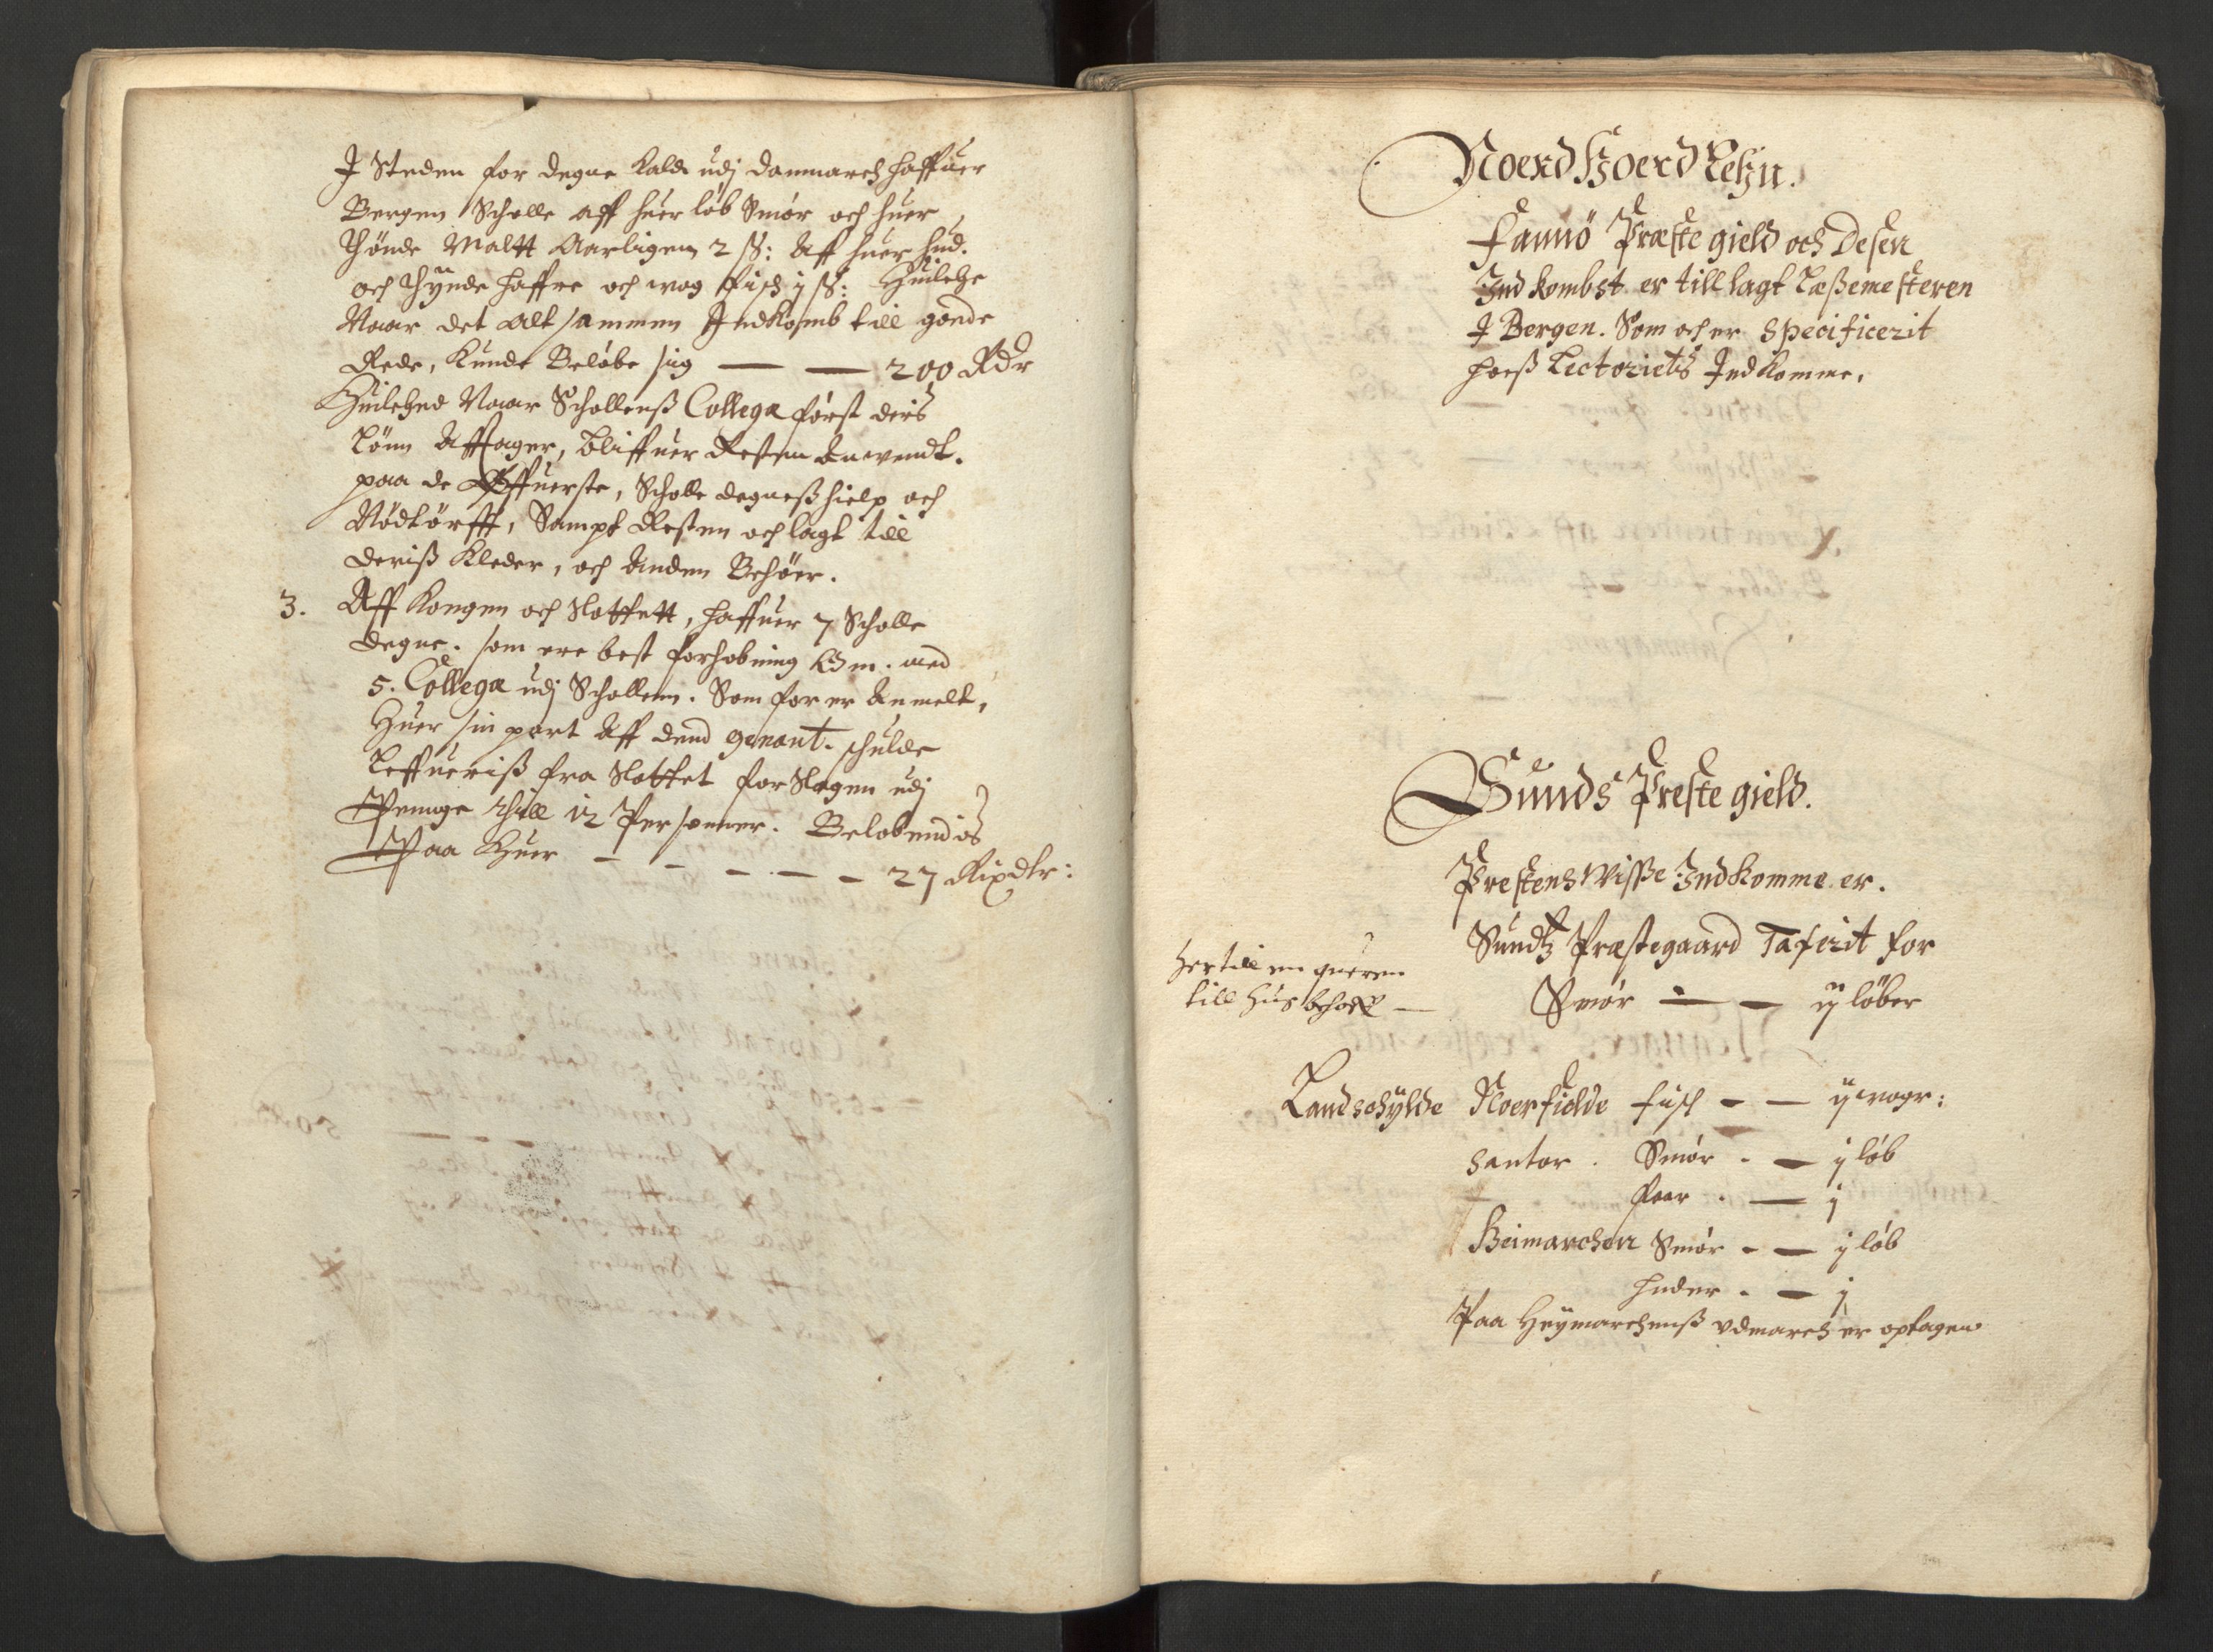 J Steden for degne Kalde udj Danmarch haffuer
Bergen Scholle aff huer løb Smør och huer
Thønde Maltt Aarligen 2 ß: Aff huer hud.
och Thynde haffre och wog fisch j ß: Huilche
Naar det Alt sammen Indkomb till goede
Rede, Kunde Beløbe sig — — 200 Rdr
Huilched Naar Schollenß Collegæ først deris
Lønn Afftager, bliffuer Resten Anwendt.
paa de Øffuerste, Scholle degneß hielp och
Nødtørfft, Sampt Resten och lagt till
deriß Kleder, och Anden Behøer.
3. Aff Kongen och Slottett, haffuer 7 Scholle
degne. som ere best forhobning om. med
5. Collegæ udj Schollen. Som for er Anmelt,
Huer sin part Aff dend genant. schulde
Leffueriß fra Slottet forslagen udj
Pennge thill 12 Personner. Belobendis
Paa Huer - - - - - 27 Rixdlr:
Noerd Hoerd Lehn.
Fannø Præste gield och Desen
Indkombst er till lagt Læßemesteren
J Bergen. Som och er Specificerit
hoeß Lectoriets Indkomme.
Sunds Preste gield.
Prestens Wisse Indkomme er.
Sundtz Præstegaard Taferit for
Smør — — ij løber
her till en queren
till husbehoff —
Landschylde Noerfielde fisch - — ij woger:
Santor. Smør. — j løb
Faar. — j
Heimarchen Smør - — j løb
huder. — j
Paa Heymarchenß vdmarch er optagen